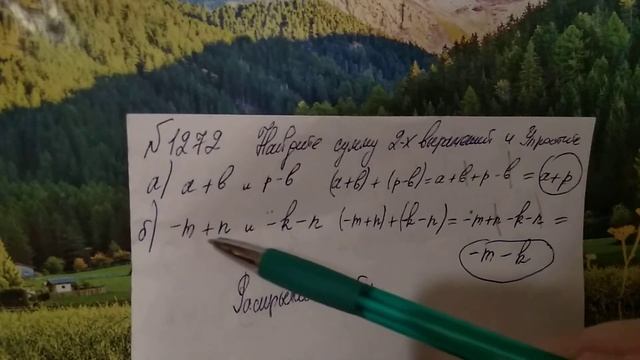 №1272 Найдите сумму 2-х выражений и упростите
а) a+b и p-b (a+b)+(p-b)=a+b+p-b=a+p
б) -m+n и -k-n (-m+n)+(-k-n)=-m+n-k-n=
-m-k